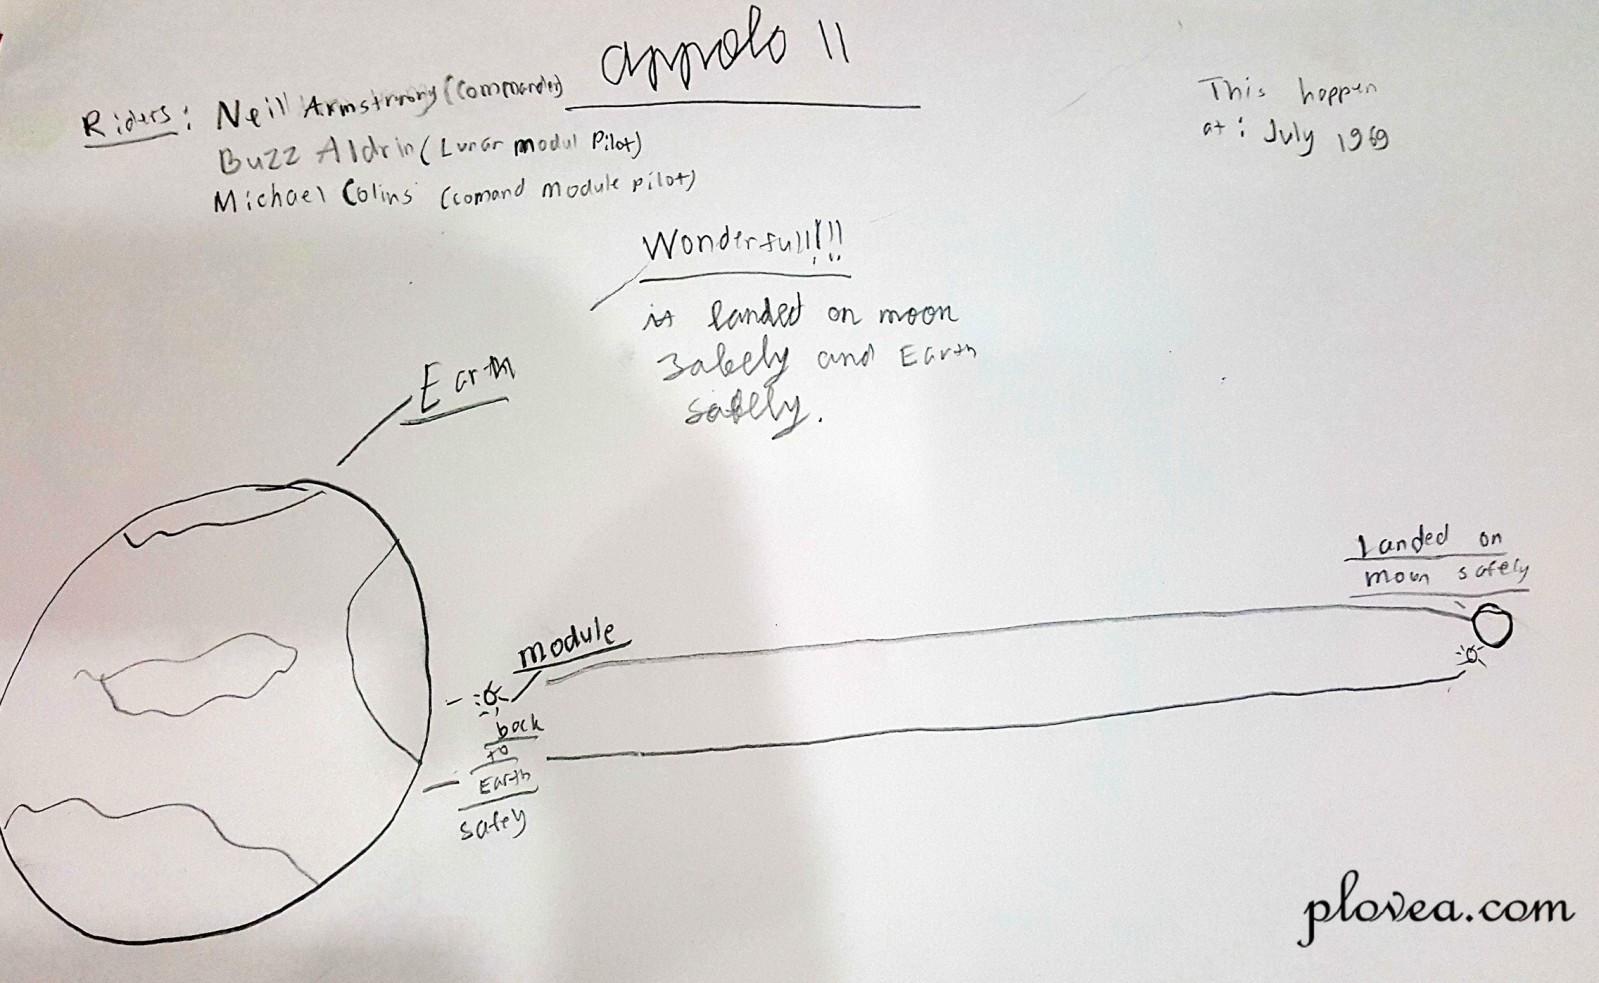 appolo 11
Riders: Neil Armstrong (Commander)
Buzz Aldrin (Lunar modul Pilot)
Michael Colins (comand module pilot)
This happen
at: July 1969
Wonderfull!!!
it landed on moon
safely and Earth
safely.
Earth
Landed on
moon safely
module
back
to
Earth
safey
plovea.com